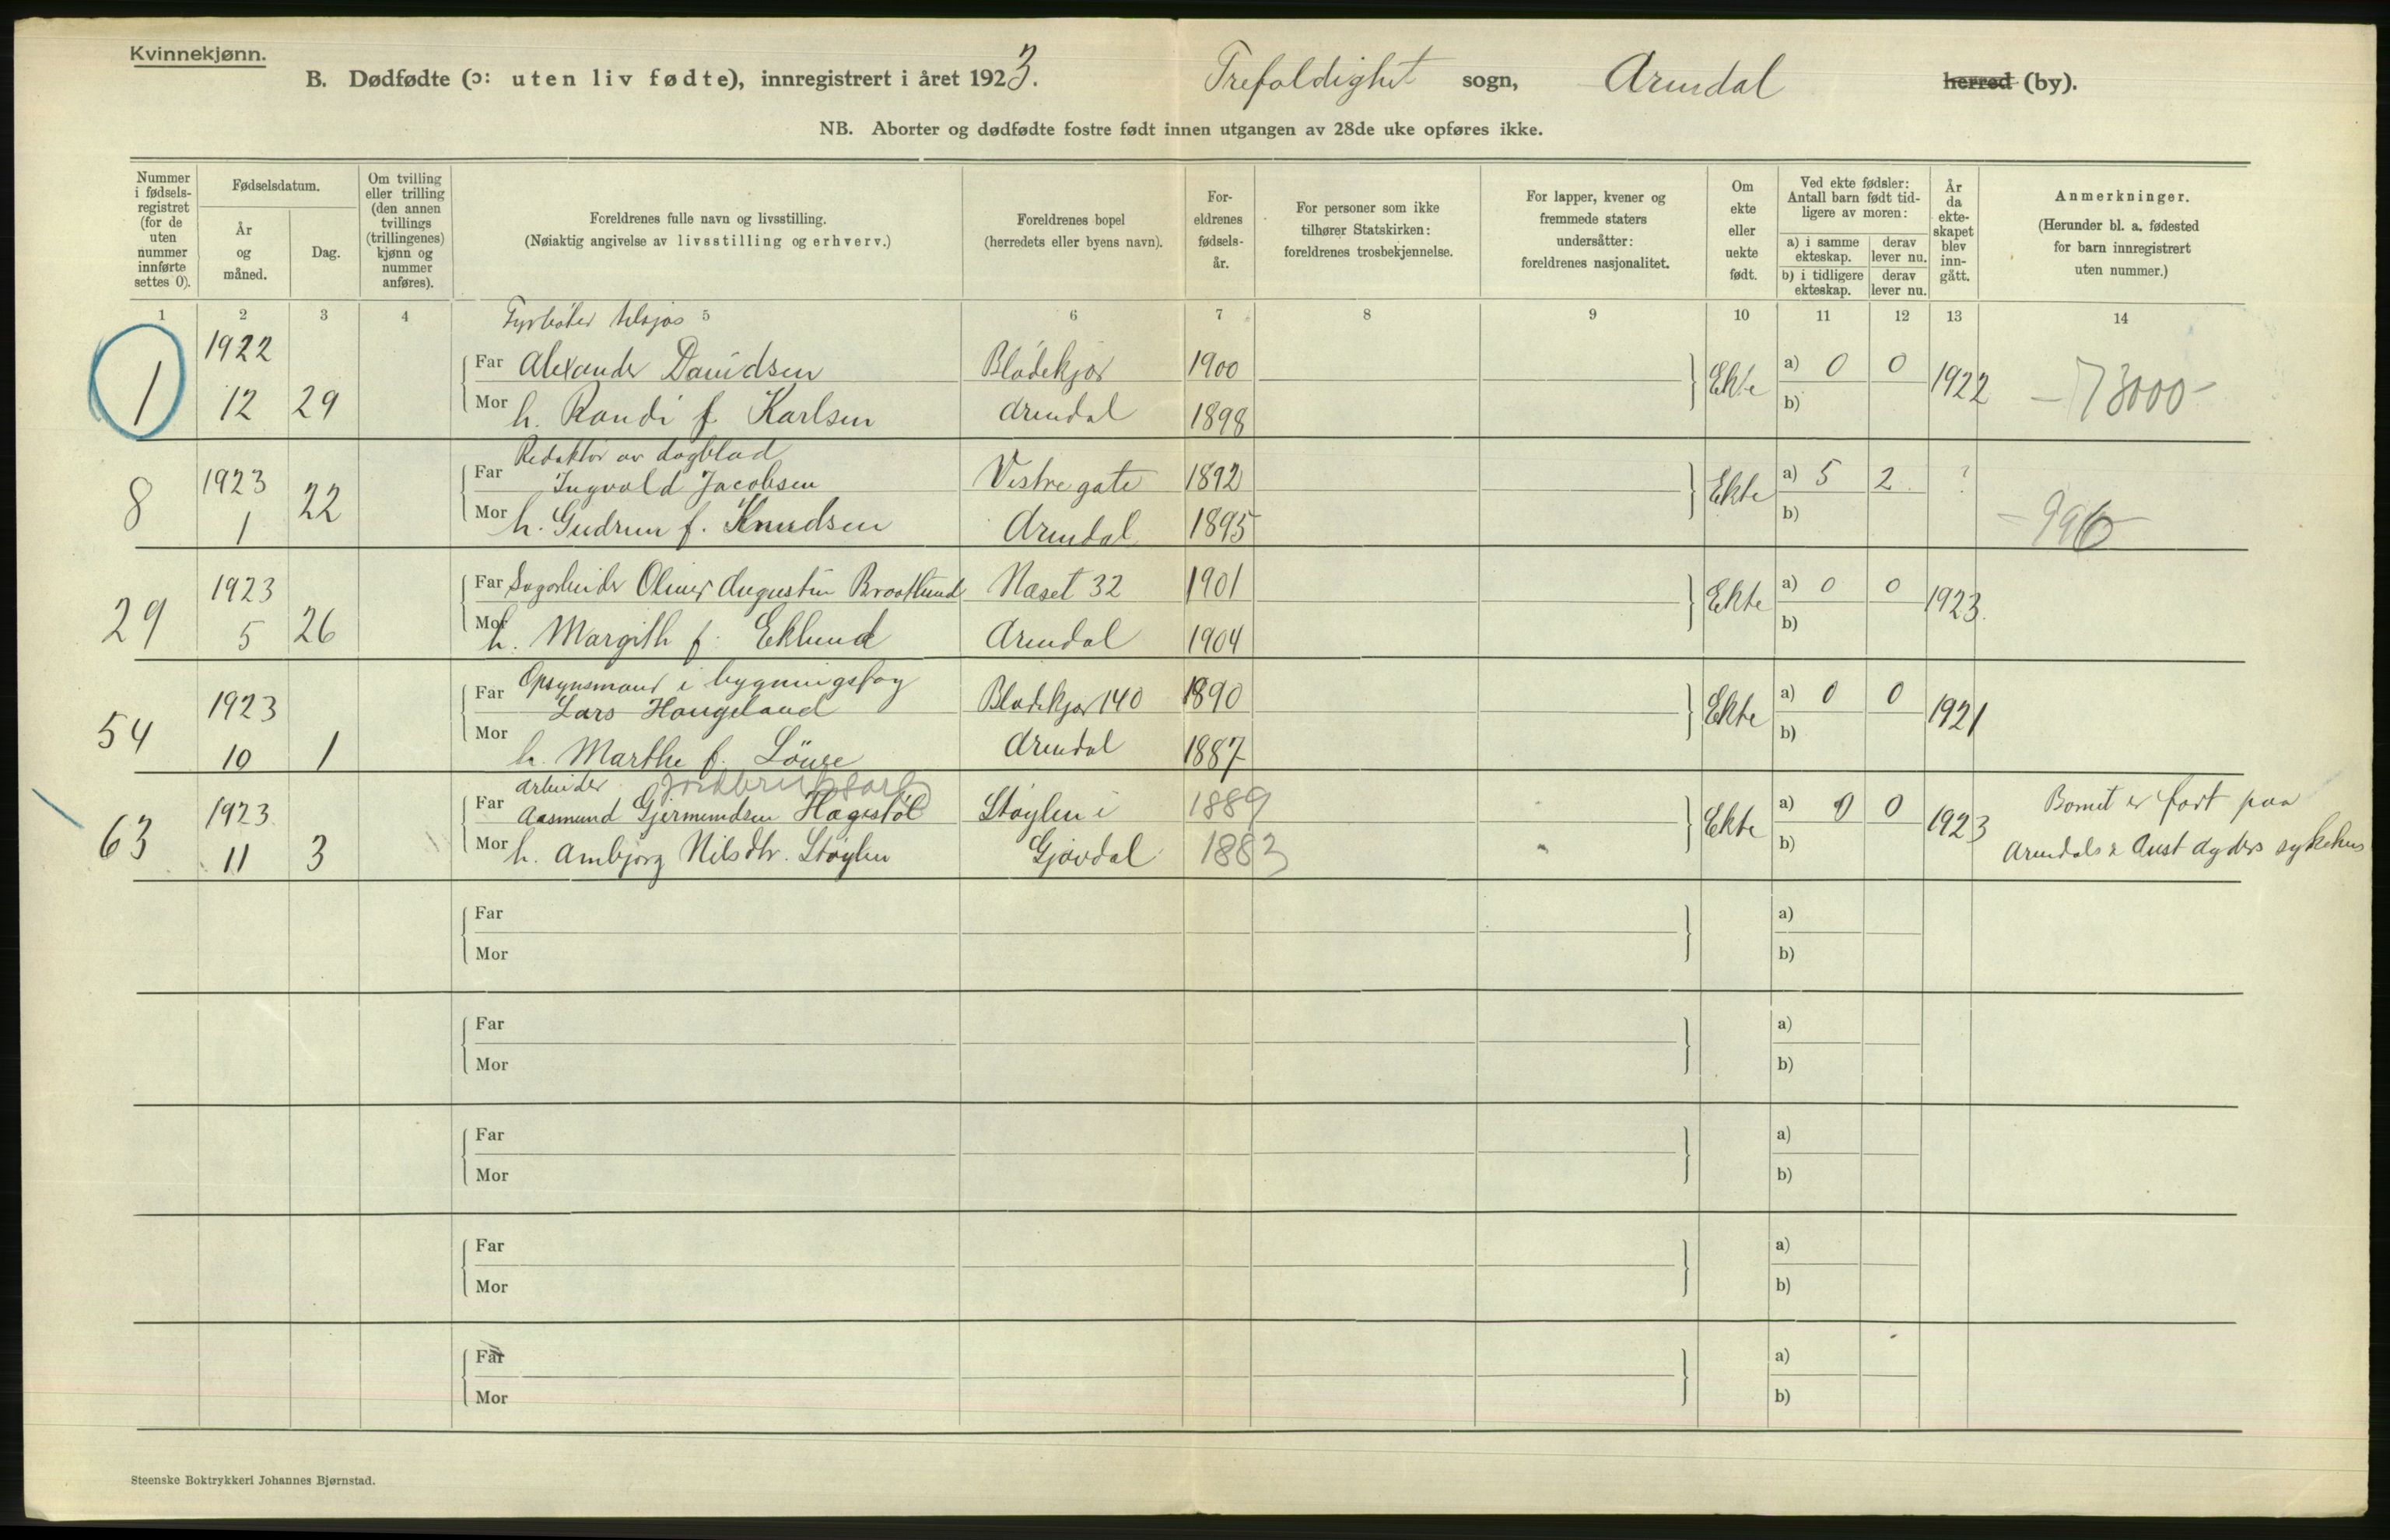 Kvinnekjønn.
B. Dødfødte (ɔ: uten liv fødte), innregistrert i året 1923. Trefoldighet sogn, Arendal herred (by).
NB. Aborter og dødfødte fostre født innen utgangen av 28de uke opføres ikke.
Nummer i fødselsregistret (for de uten nummer innførte settes 0).
Fødselsdatum.
År og måned.
Dag.
Om tvilling eller trilling (den annen tvillings (trillingenes) kjønn og nummer anføres).
Foreldrenes fulle navn og livsstilling.
(Nøiaktig angivelse av livsstilling og erhverv.)
Foreldrenes bopel
(herredets eller byens navn).
Foreldrenes fødselsår.
For personer som ikke tilhører Statskirken: foreldrenes trosbekjennelse.
For lapper, kvener og fremmede staters undersåtter: foreldrenes nasjonalitet.
Om ekte eller uekte født.
Ved ekte fødsler: Antall barn født tidligere av moren:
a) i samme ekteskap.
derav lever nu.
b) i tidligere ekteskap.
derav lever nu.
År da ekteskapet blev inngått.
Anmerkninger.
(Herunder bl. a. fødested for barn innregistrert uten nummer.)
1 2 3 4 5 6 7 8 9 10 11 12 13 14
Fyrbøter tilsjøs
1922
Far Alexander Davidsen Blødekjær 1900 Ekte a) 0 0 1922 -73000-
1 12 29
Mor h. Randi f. Karlsen Arendal 1898 b)
Redaktør av dagblad
8 1923 22 Far Ingvald Jacobsen Vestregate 1892 Ekte a) 5 2 ?
1 Mor h. Gudrun f. Knudsen Arendal 1895 b) -996-
29 1923 26 Far Oliver Augustin Naset 32 1901 Ekte a) 0 0 1923.
5 Mor h. Margith f. Eklund Arendal 1904 b)
Opsynsmand i bygningsfag
54 1923 Far Lars Haugeland Blødekjær 140 1890 Ekte a) 0 0 1921
10 1 Mor h. Marthe f. Arendal 1887 b)
arbeider
63 1923 Far Aasmund Gjermundsen Hagestøl Støylen i 1889 Ekte a) 0 0 1923 Barnet er født paa
11 3 Mor h. Ambjørg Nilsdtr. Støylen Gjøvdal 1883 b) Arendals & Aust Agders sykehus
Far a)
Mor b)
Far a)
Mor b)
Far a)
Mor b)
Far a)
Mor b)
Far a)
Mor b)
Steenske Boktrykkeri Johannes Bjørnstad.